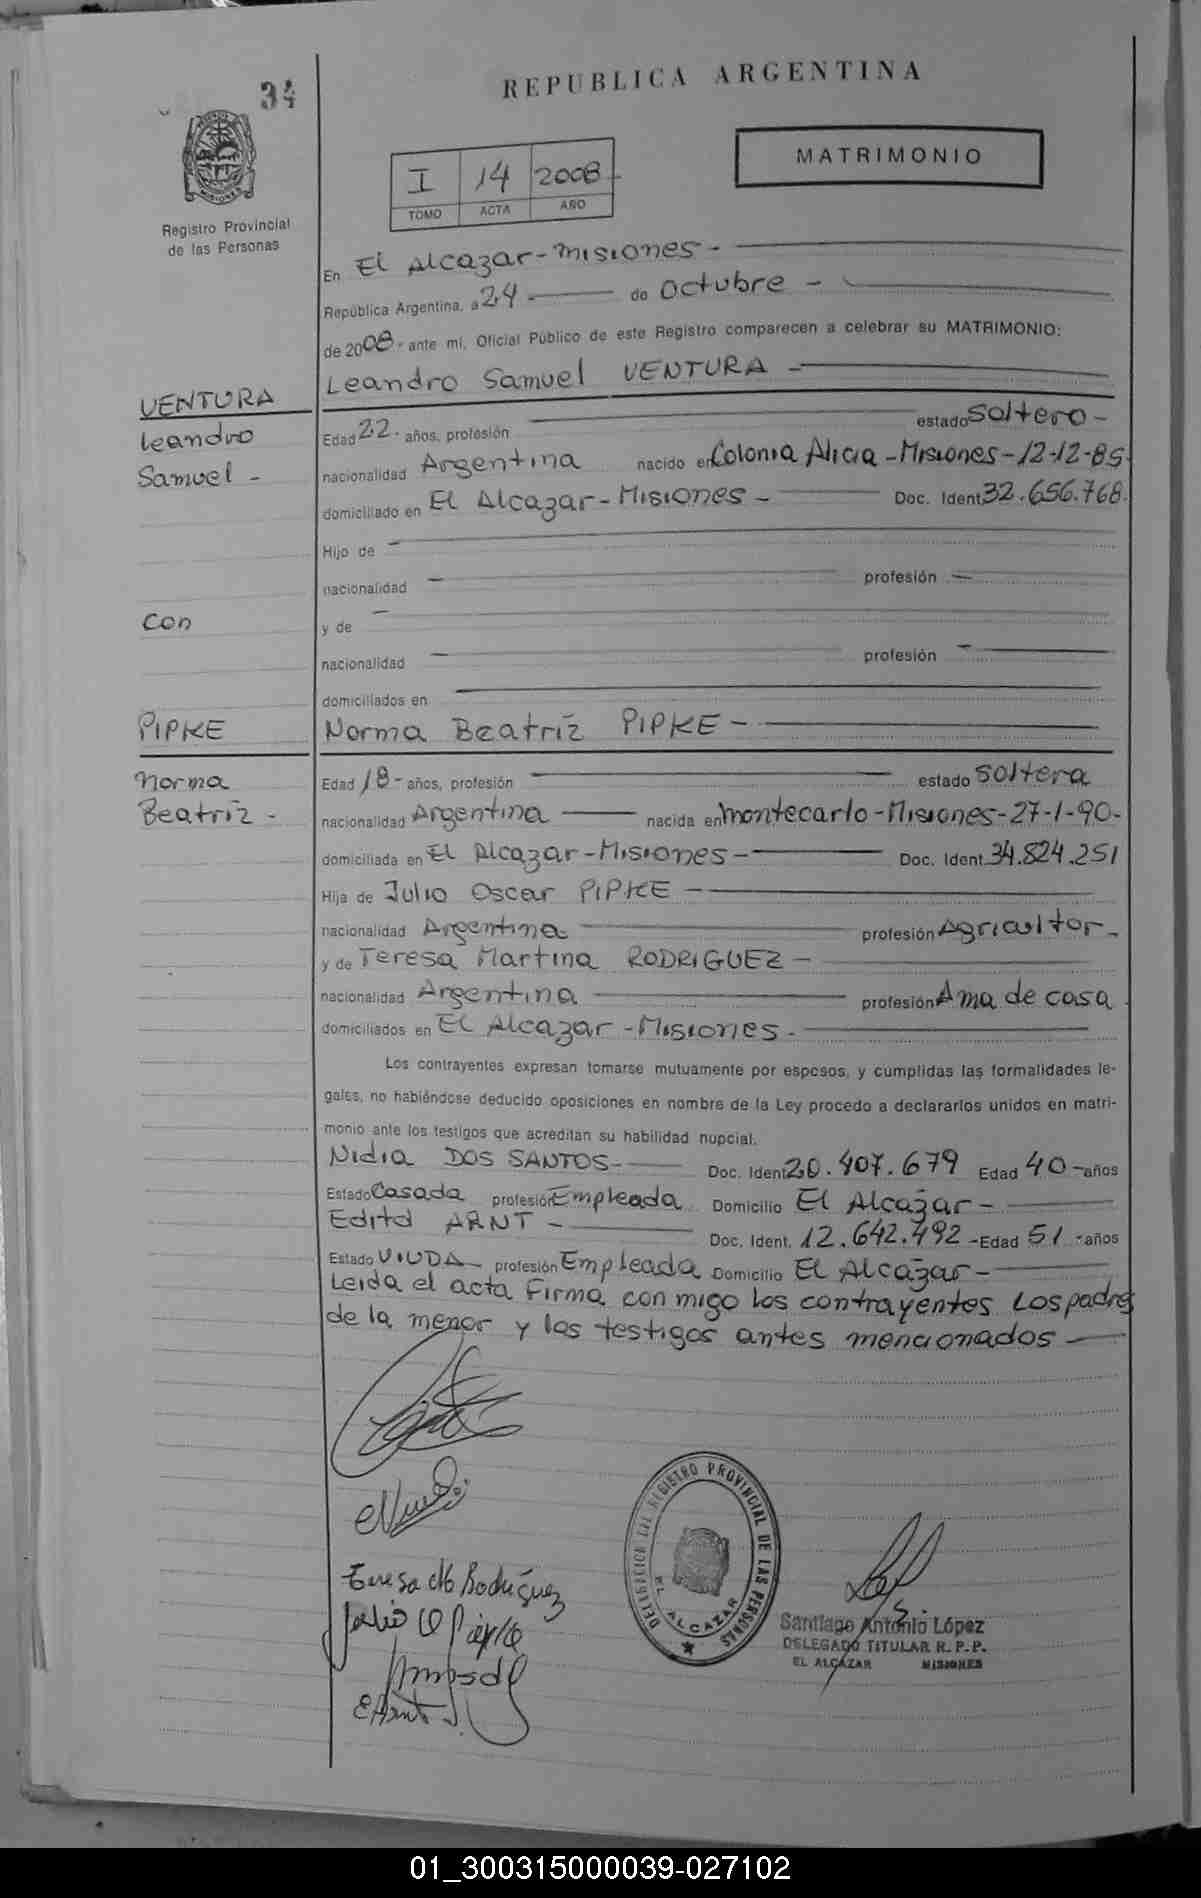 34
REPUBLICA ARGENTINA
MATRIMONIO
I 14 2008
TOMO ACTA AÑO
Registro Provincial
de las Personas
En El Alcazar - Misiones -
República Argentina, a 24 de Octubre -
de 2008 - ante mí, Oficial Público de este Registro comparecen a celebrar su MATRIMONIO:
Leandro Samuel VENTURA -
VENTURA
Leandro
Samuel -
Edad 22 - años, profesión estado Soltero -
nacionalidad Argentina nacido en Colonia Alicia - Misiones - 12-12-85.
domiciliado en El Alcazar - Misiones - Doc. Ident. 32.656.768.
Hijo de -
nacionalidad - profesión -
Con
y de -
nacionalidad - profesión -
domiciliados en -
PIPKE
Norma Beatríz PIPKE -
Norma
Beatríz -
Edad 18 - años, profesión estado Soltera
nacionalidad Argentina nacida en Montecarlo - Misiones - 27-1-90 -
domiciliada en El Alcazar - Misiones - Doc. Ident. 34.824.251
Hija de Julio Oscar PIPKE -
nacionalidad Argentina profesión Agricultor -
y de Teresa Martina RODRIGUEZ -
nacionalidad Argentina profesión Ama de casa.
domiciliados en El Alcazar - Misiones -
Los contrayentes expresan tomarse mutuamente por esposos, y cumplidas las formalidades le-
gales, no habiéndose deducido oposiciones en nombre de la Ley procedo a declararlos unidos en matri-
monio ante los testigos que acreditan su habilidad nupcial.
Nidia DOS SANTOS - Doc. Ident. 20.407.679 Edad 40 - años
Estado Casada profesión Empleada Domicilio El Alcazar -
Edita ARNT - Doc. Ident. 12.642.492 - Edad 51 - años
Estado VIUDA - profesión Empleada Domicilio El Alcazar -
Leida el acta Firma con migo los contrayentes Los padres
de la menor y los testigos antes mencionados
Teresa M Rodriguez
Julio O Pipke
E Arnt
DELEGACION DEL REGISTRO PROVINCIAL DE LAS PERSONAS
EL ALCAZAR
Santiago Antonio López
DELEGADO TITULAR R. P. P.
EL ALCÁZAR MISIONES
01_300315000039-027102